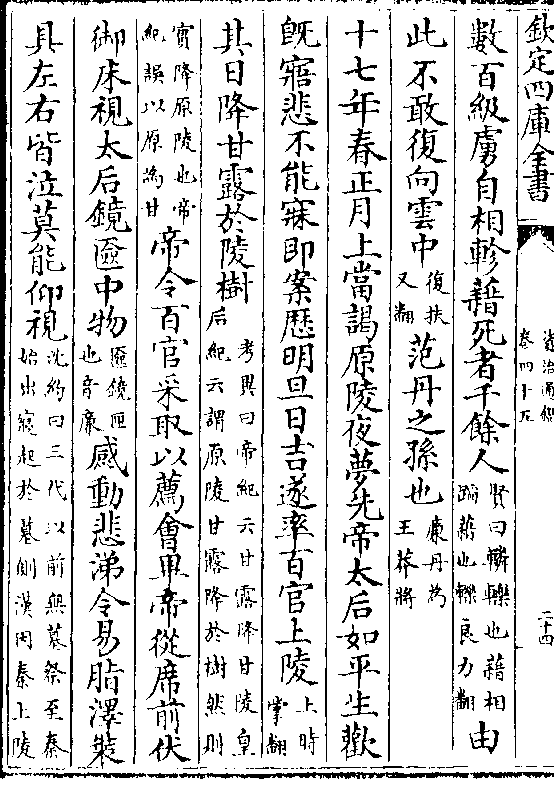 欽定四庫全書
資治通鑑
卷四十五
二十四
數百級虜自相轸藉死者千餘人賢曰轔轢也藉相蹈藉也轢良力翻由
此不敢復向雲中復扶又翻范丹之孫也廉丹為王莽將
十七年春正月上當謁原陵夜夢先帝太后如平生歡
旣寤悲不能寐即案歴明旦日吉遂率百官上陵上時掌翻
其日降甘露於陵樹考異曰帝紀云甘露降甘陵皇后紀云謂原陵甘露降於樹然則
實降原陵也帝紀誤以原為甘帝令百官采取以薦會畢帝從席前伏
御牀視太后鏡匳中物匳鏡匣也音廉感動悲涕令易脂澤裝
具左右皆泣莫能仰視沈約曰三代以前無墓祭至秦始出寢起於墓側漢因秦上陵